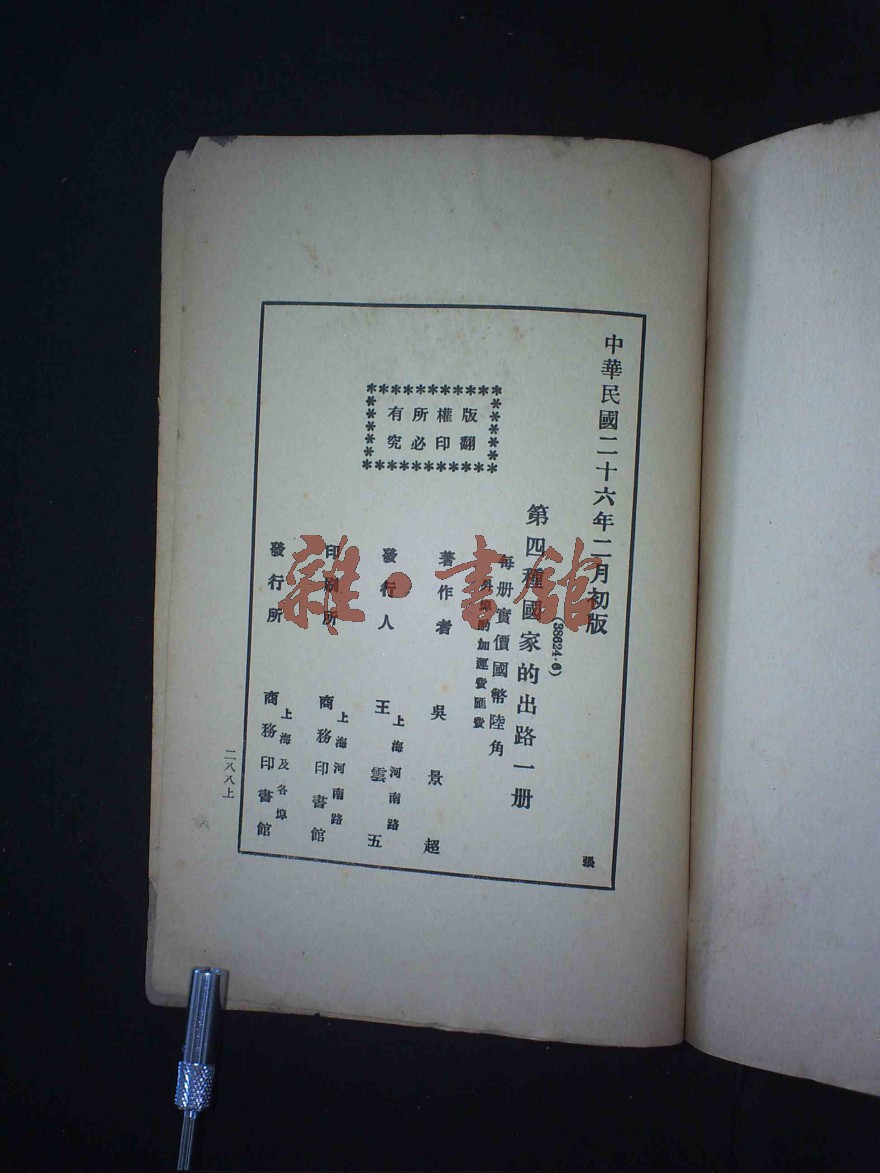 中華民國二十六年二月初版
(38624·6)
第四種國家的出路一册
每册實價國幣陸角
外埠酌加運費匯費
著作者 吳景超
發行人 王雲五
上海河南路
印刷所 商務印書館
上海河南路
發行所 商務印書館
上海及各埠
版權所有
翻印必究
張
二八八上
雜·書館